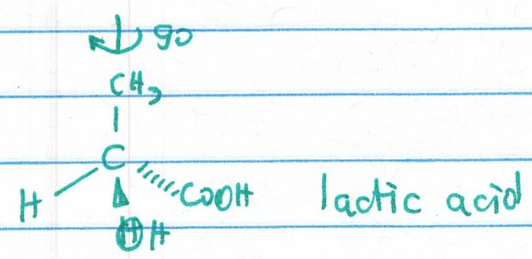 90
CH3
C
H COOH lactic acid
OH